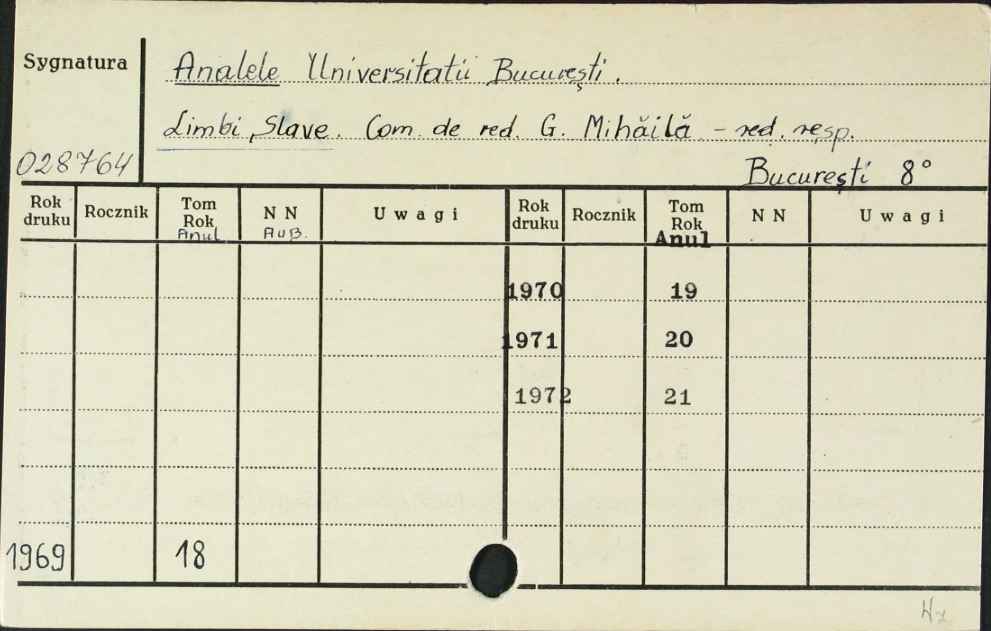 Sygnatura
Analele Universitatii București.
Limbi Slave. Com. de red. G. Mihăilă – red. resp.
028764
București 8°
Rok druku Rocznik Tom Rok Anul NN Uwagi Rok druku Rocznik Tom Rok Anul NN Uwagi
1970 19
1971 20
1972 21
1969 18